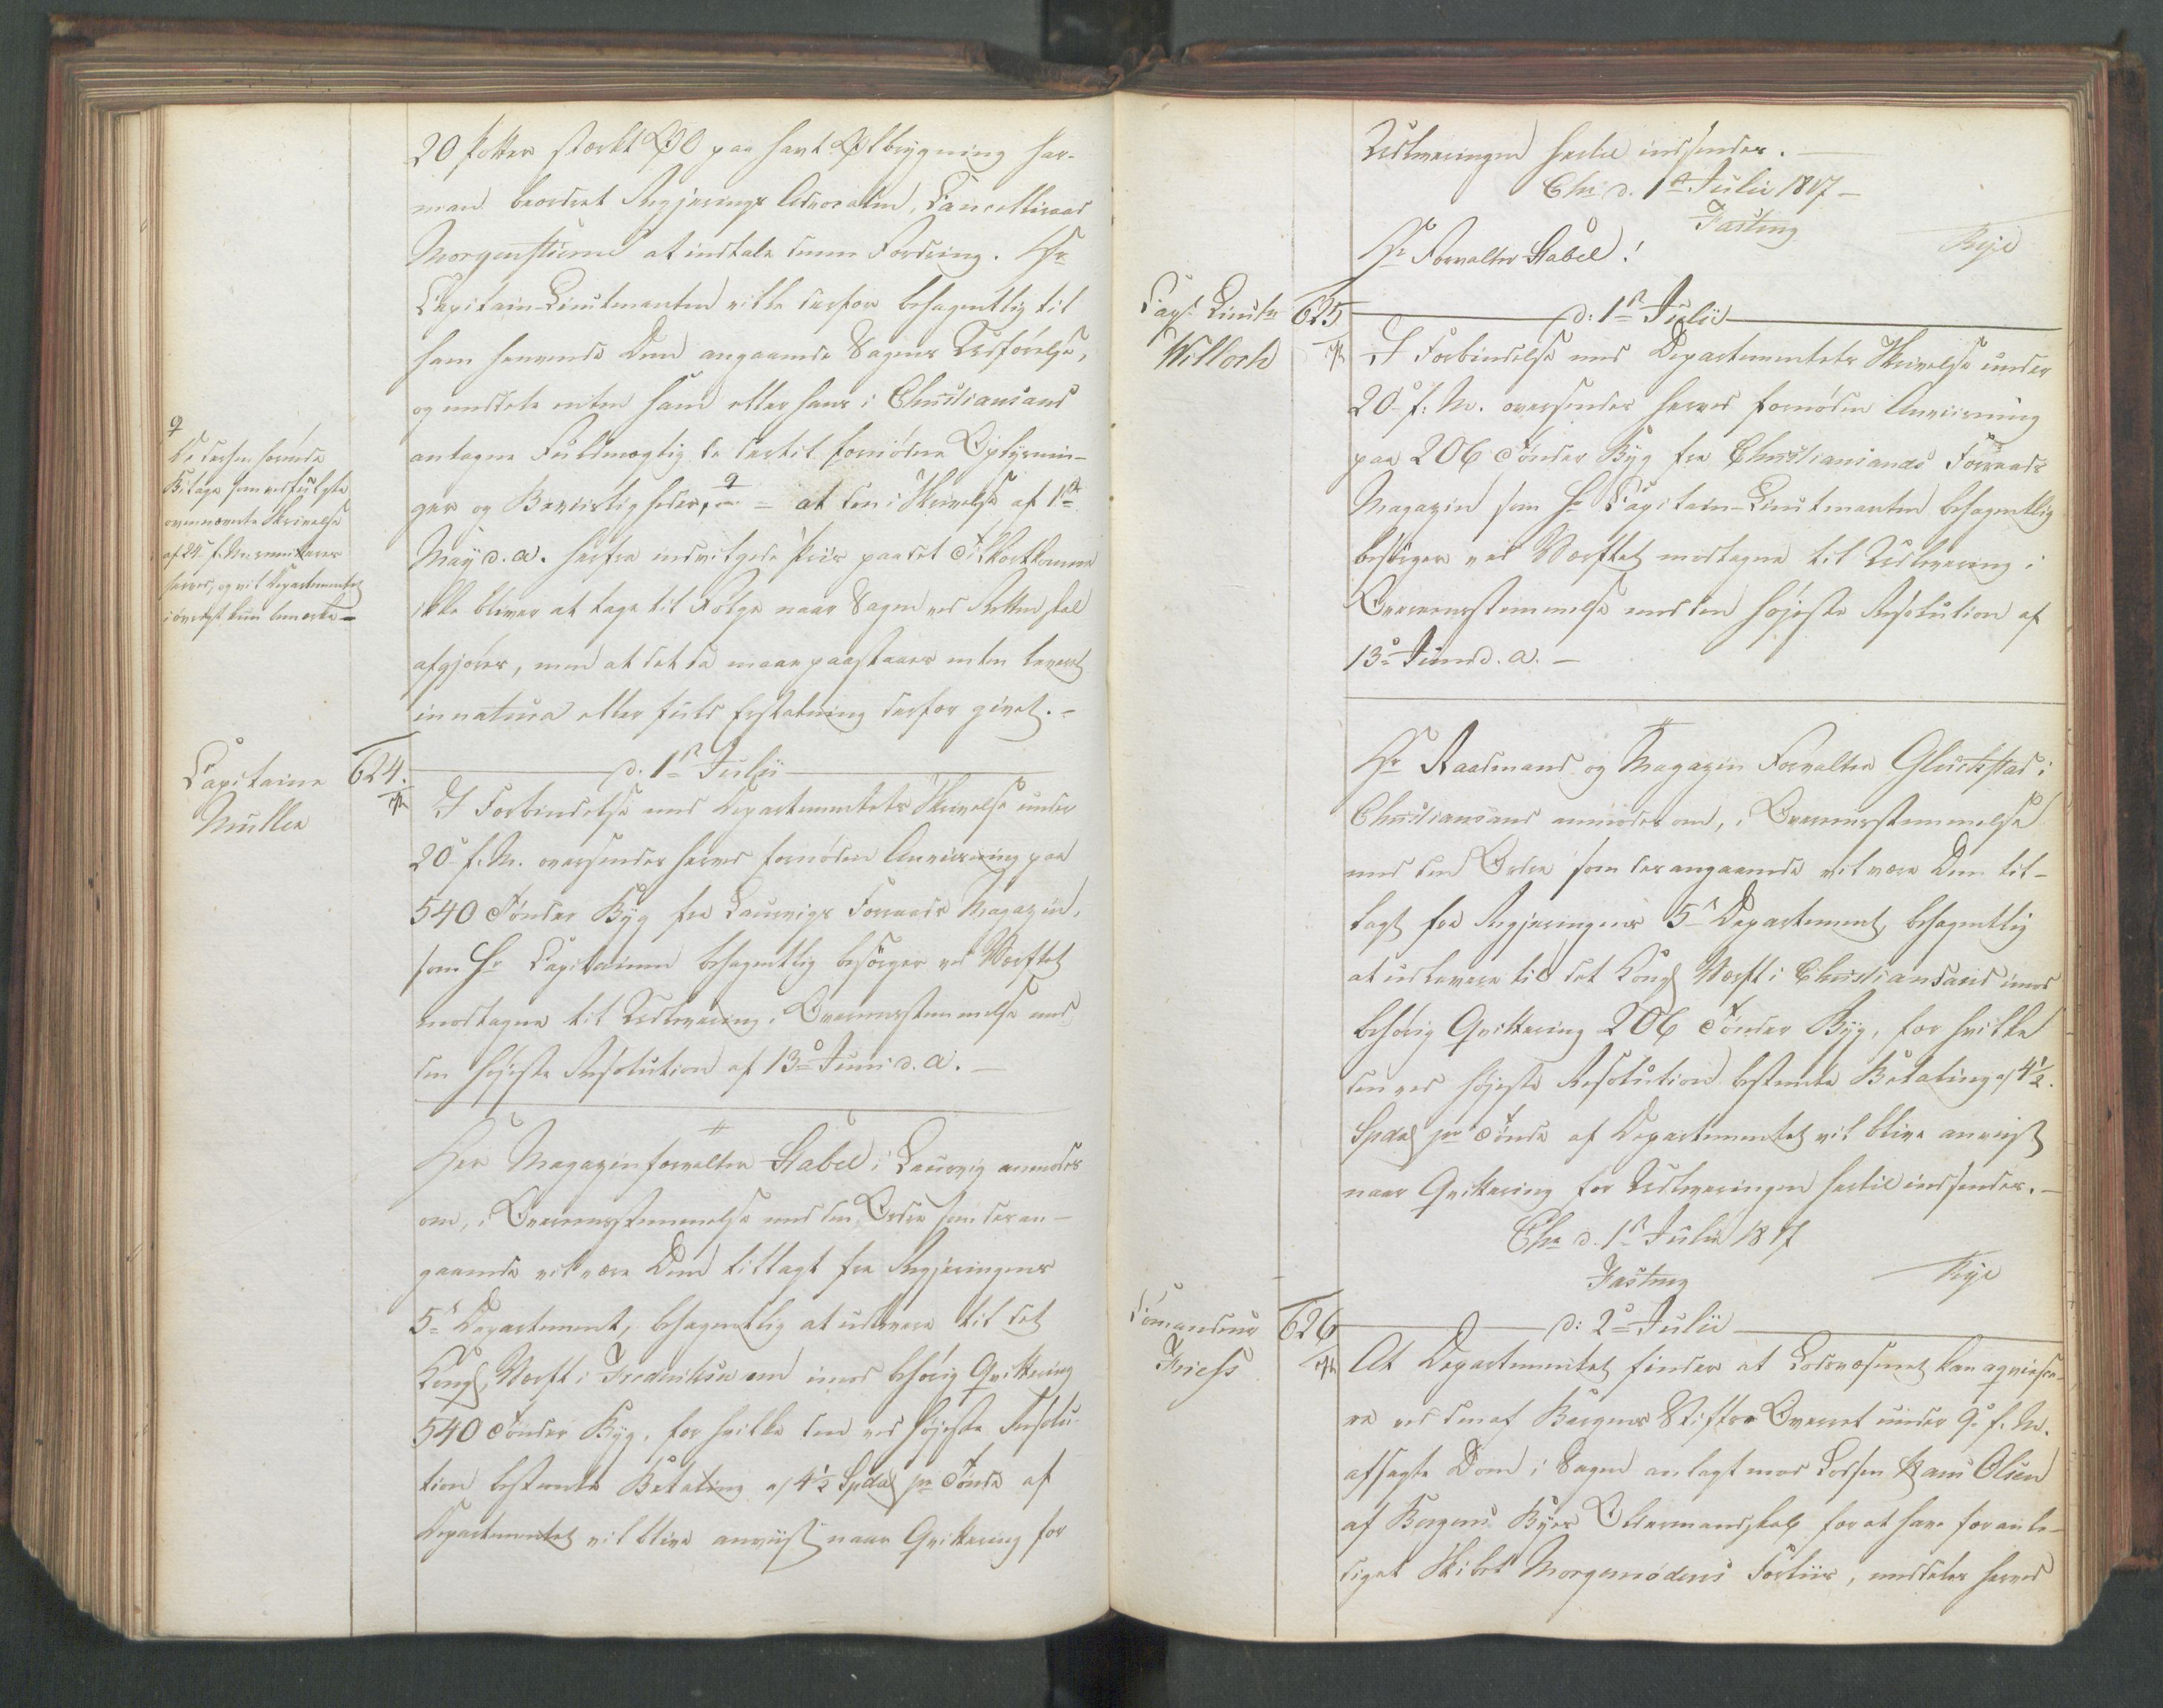 20 Potter stærkt Øl paa hant Ølbrygning har
man beordret Regjerings Advocaten, Cancelliraad
Morgenstierne at indtale denne Fordring. Hr
Capitain-Lieutenanten ville derfor behagentlig til
ham henvende Dem angaaende Sagens Udførelse,
og meddele enten ham eller hans i Christiansand
antagne Fuldmægtig de dertil fornødne Oplysnin-
ger og Beviisligheder, at den i Skrivelse af 1ste
May d. a. herfra indvilgede Priis paa det Tilkortkomne
ikke bliver at tage til Følge naar Sagen ved Retten skal
afgjøres, men at det da maae paastaaes enten leveret
in natura eller fuld Erstatning derfor givet.
De derhen hørende
Bilage som vedfulgte
ovennævnte Skrivelse
af 24 f. M. remitteres
herved, og vil Departementet
i øvrigt kun bemærke
Capitaine
Müller
624.
d. 1ste Julii
I Forbindelse med Departementets Skrivelse under
20de f. M. oversendes herved fornøden Anviisning paa
540 Tønder Byg fra Laurvigs Forraads Magazin,
som Hr Capitainen behagentlig besørger ved Værftet
modtagne til Udlevering i Overeensstemmelse med
den højeste Resolution af 13de Juni d. a.
Herr Magazinforvalter Stabel i Laurvig anmodes
om, i Overeensstemmelse med den Ordre som deran-
gaaende vil være Dem tillagt fra Regjeringens
5te Departement, behagentlig at udlevere til det
Kongl. Værft i Frederiksværn imod behørig Qvittering
540 Tønder Byg, for hvilke den ved højeste Resolu-
tion bestemte Betaling af 4½ Spdal pr Tønde af
Departementet vil blive anviist naar Qvittering for
Udleveringen hertil indsendes.
Chra d. 1ste Julii 1817
Fasting
Rye
Hr Forvalter Stabel!
Capt. Lieutn
Willoch
625
d: 1ste Julii
I Forbindelse med Departementets Skrivelse under
20de f. M. oversendes herved fornøden Anviisning
paa 206 Tønder Byg fra Christiansands Forraads
Magazin som Hr Capitain-Lieutenanten behagentlig
besørger ved Værftet modtagne til Udlevering i
Overeensstemmelse med den højeste Resolution af
13de Juni d. a.
Hr Raadmand og Magazin Forvalter Gluckstad i
Christiansand anmodes om, i Overeensstemmelse
med den Ordre som derangaaende vil være Dem til-
lagt fra Regjeringens 5te Departement, behagentlig
at udlevere til det Kongl Værft i Christiansand imod
behørig Qvittering 206 Tønder Byg, for hvilke
den ved højeste Resolution bestemte Betaling af 4½
Spdal pr Tønde af Departementet vil blive anviist
naar Qvittering for Udleveringen hertil indsendes.
Chra d. 1ste Julii 1817
Fasting
Rye
Comandeur
Friess
626
d: 2den Julii
At Departementet finder at Lodsvæsenet kan acqviesce-
re ved den af Bergens Stifts Overret under 9de f. M.
afsagte Dom i Sagen anlagt mod Lodsen Hans Olsen
af Bergens Byes Oldermandskab for at have foranle-
diget Skibet Morgenrødens Forliis, meddeles herved